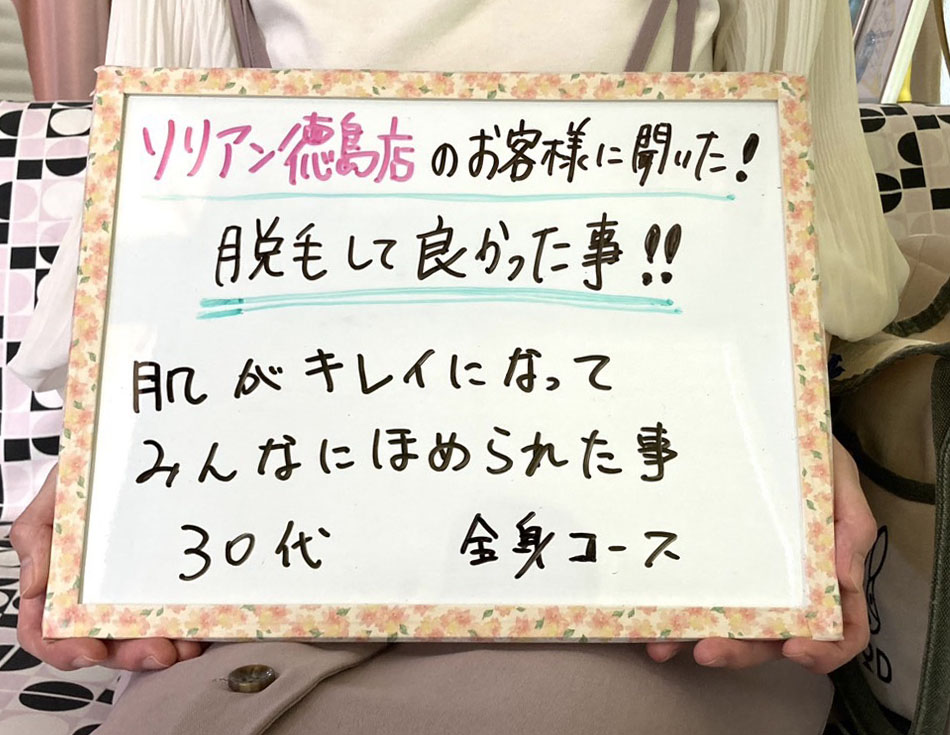 リリアン徳島店のお客様に聞いた!
脱毛して良かった事!!
肌がキレイになって
みんなにほめられた事
30代 全身コース